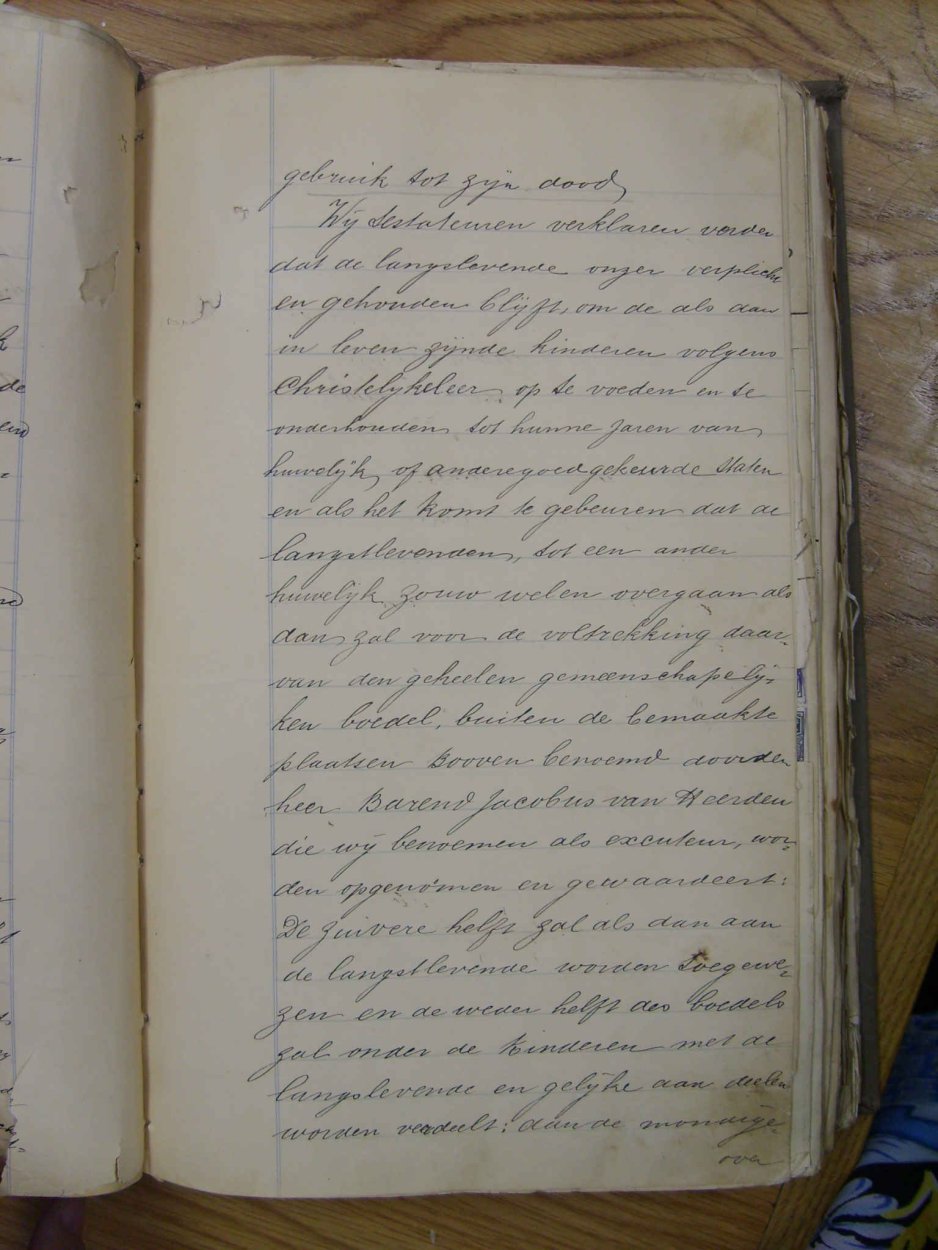 gebruik tot zijn dood
Wij testateuren verklaren verder
dat de langslevende onzer verplicht
en gehouden blijft, om de als dan
in leven zijnde kinderen volgens
Christelijkeleer op te voeden en te
onderhouden tot hunne jaren van
huwelijk, of andere goed gekeurde Staten
en als het komt te gebeuren dat de
langstlevenden, tot een ander
huwelijk zouw welen overgaan als
dan zal voor de voltrekking daar-
van den geheelen gemeenschapelij-
ken boedel, buiten de bemaakte
plaatsen Booven benoemd door den
heer Barend Jacobus van Heerden
die wij benoemen als executeur, wor-
den opgenomen en gewaardeert:
De zuivere helft zal als dan aan
de langstlevende worden toegewe-
zen en de weder helft des boedels
zal onder de kinderen met de
langslevende en gelijke aan deelen
worden verdeelt: dan de mondige
over
de